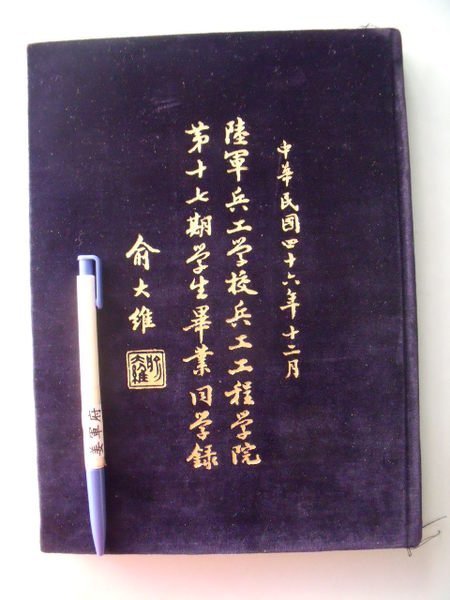 中華民國四十六年十二月
陸軍兵工学校兵工工程学院
第十七期学生畢業同学録
俞大維
姜軍府